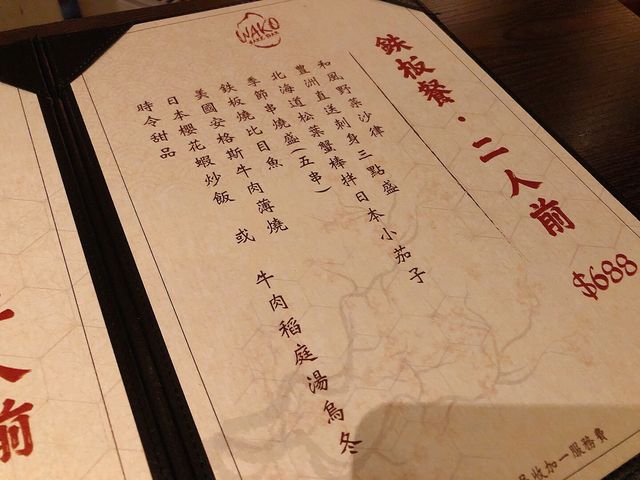 WAKO
SAKE BAR
鉄板餐·二人前
$688
和風野菜沙律
豐洲直送刺身三點盛
北海道松葉蟹棒拌日本小茄子
季節串燒盛(五串)
鉄板燒比目魚
美國安格斯牛肉薄燒
日本櫻花蝦炒飯 或 牛肉稻庭湯烏冬
時令甜品
收加一服務費
人前